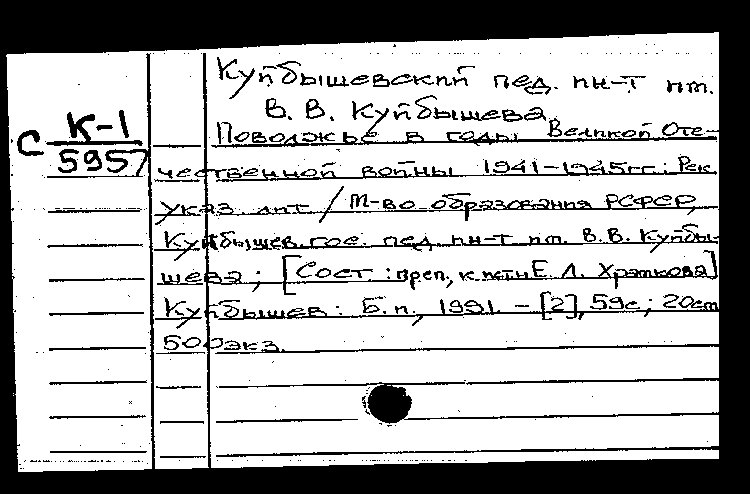 Куйбышевский пед. ин-т им.
В. В. Куйбышева.
С К-1
5957
Поволжье в годы Великой Оте-
чественной войны 1941-1945гг.: Рек.
указ. лит / М-во образования РСФСР,
Куйбышев. гос. пед. ин-т им. В.В. Куйбы-
шева; [Сост.: преп., к.ист.н Е. Л. Храмкова]
Куйбышев: Б.и., 1991. - [2], 59с; 20см
500экз.